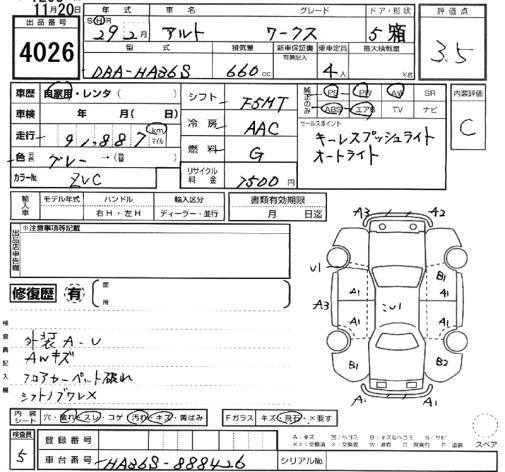 11月20日
年式 車名 グレード ドア・形状 評価点
出品番号
4026
S H R
29年2月 アルト ワークス 5 箱
3.5
型式 排気量 新車保証書 乗車定員 最大積載量
有無記入
DBA-HA36S 660cc 4人 kg
車歴 自家用・レンタ( )
シフト F5MT
純正のみ PS PW AW SR
ABS エアB TV ナビ
内装評価
C
車検 年 月( 日)
冷房 AAC
セールスポイント
キーレスプッシュライト
オートライト
走行 91,887 km マイル
燃料 G
色 元色 グレー→(替 )
カラーNo ZVC
リサイクル料金 7500円
輸入車 モデル年式 ハンドル 輸入区分 書類有効期限
右H・左H ディーラー・並行 月 日迄
出品店申告欄 ※注意事項等記載
修復歴 有 箇所
検査員記入欄
外装 A-U
AWキズ
フロアカーペット破れ
シフトノブワレX
A3 A2
U1 A1 B1
A3 U1
A1 A1
B2 B2
A1 A1
内装シート 穴・垂れ・スレ・コゲ 汚れ・キズ・黄ばみ
Fガラス キズ・飛石・×要す
スペア
検査員 5
登録番号
A:キズ 凹:ヘコミ B:キズ&ヘコミ S:サビ
××:交換済 X:交換 W:波有 C:腐食有 P:塗装
車台番号 HA36S-888426
シリアルNo